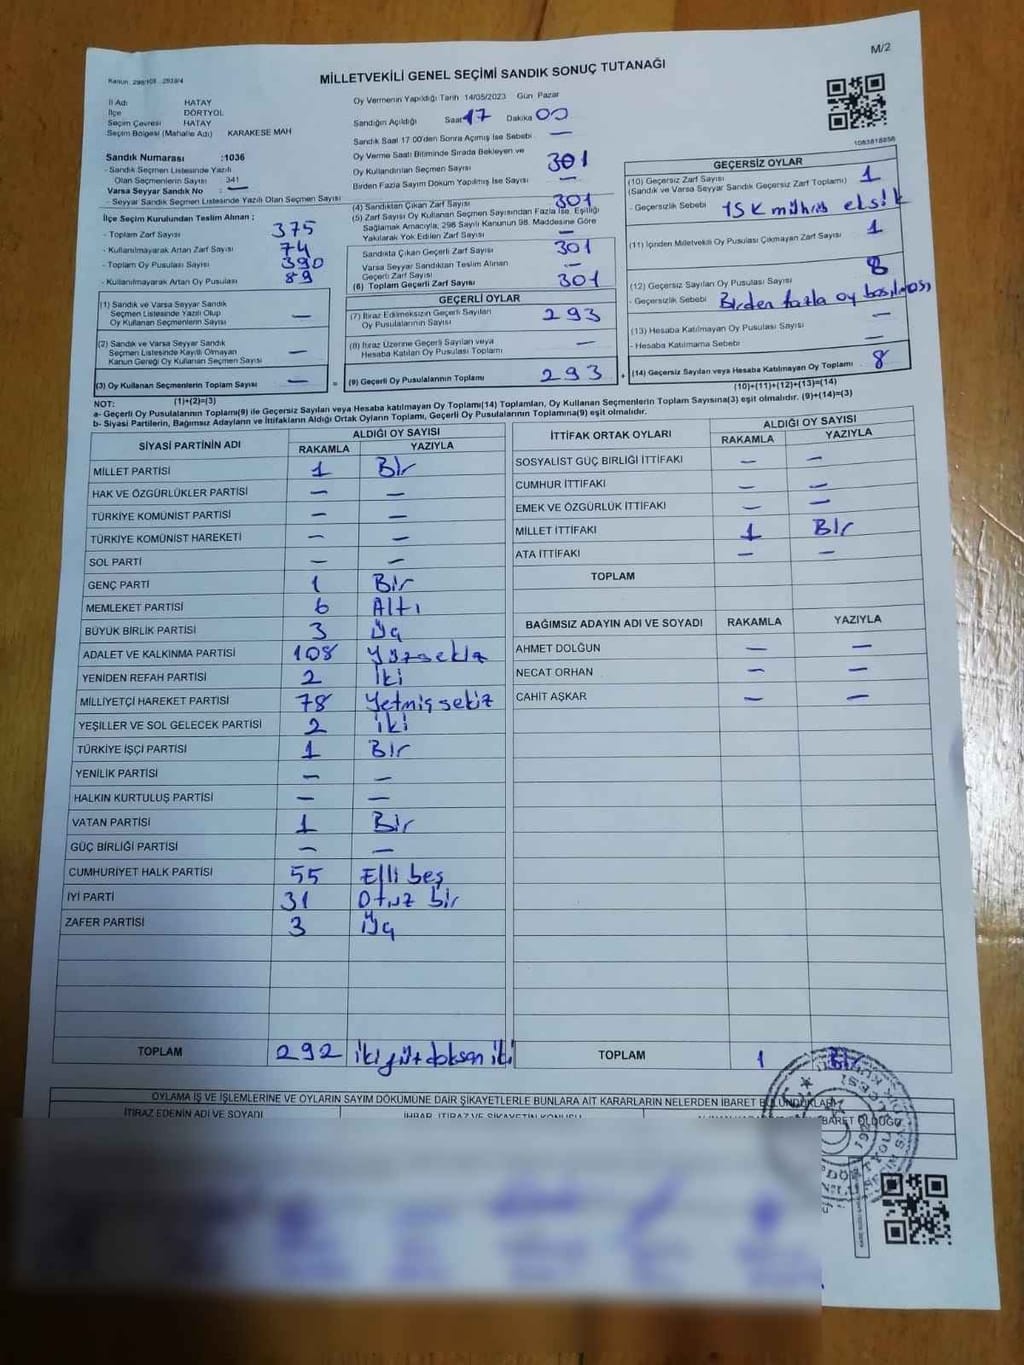 M/2
MİLLETVEKİLİ GENEL SEÇİMİ SANDIK SONUÇ TUTANAĞI
İl Adı HATAY
İlçe DÖRTYOL
Seçim Çevresi HATAY
Seçim Bölgesi (Mahalle Adı) KARAKESE MAH
Sandık Numarası :1036
- Sandık Seçmen Listesinde Yazılı
Olan Seçmenlerin Sayısı 341
Varsa Seyyar Sandık No : —
- Seyyar Sandık Seçmen Listesinde Yazılı Olan Seçmen Sayısı
İlçe Seçim Kurulundan Teslim Alınan ;
- Toplam Zarf Sayısı 375
- Kullanılmayarak Artan Zarf Sayısı 74
- Toplam Oy Pusulası Sayısı 390
- Kullanılmayarak Artan Oy Pusulası 89
(1) Sandık ve Varsa Seyyar Sandık
Seçmen Listesinde Yazılı Olup
Oy Kullanan Seçmenlerin Sayısı —
(2) Sandık ve Varsa Seyyar Sandık
Seçmen Listesinde Kayıtlı Olmayan
Kanun Gereği Oy Kullanan Seçmen Sayısı —
(3) Oy Kullanan Seçmenlerin Toplam Sayısı —
(1)+(2)=(3)
Oy Vermenin Yapıldığı Tarih 14/05/2023 Gün Pazar
Sandığın Açıldığı Saat 17 Dakika 00
Sandık Saat 17:00'den Sonra Açımış İse Sebebi —
Oy Verme Saati Bitiminde Sırada Bekleyen ve
Oy Kullandırılan Seçmen Sayısı 301
Birden Fazla Sayım Döküm Yapılmış İse Sayısı —
(4) Sandıktan Çıkan Zarf Sayısı 301
(5) Zarf Sayısı Oy Kullanan Seçmen Sayısından Fazla İse, Eşitliği
Sağlamak Amacıyla, 298 Sayılı Kanunun 98. Maddesine Göre
Yakılarak Yok Edilen Zarf Sayısı —
Sandıkta Çıkan Geçerli Zarf Sayısı 301
Varsa Seyyar Sandıktan Teslim Alınan
Geçerli Zarf Sayısı —
(6) Toplam Geçerli Zarf Sayısı 301
GEÇERLİ OYLAR
(7) İtiraz Edilmeksizin Geçerli Sayılan
Oy Pusulalarının Sayısı 293
(8) İtiraz Üzerine Geçerli Sayılan veya
Hesaba Katılan Oy Pusulası Toplamı —
= (9) Geçerli Oy Pusulalarının Toplamı 293 +
1083818856
GEÇERSİZ OYLAR
(10) Geçersiz Zarf Sayısı 1
(Sandık ve Varsa Seyyar Sandık Geçersiz Zarf Toplamı)
- Geçersizlik Sebebi YSK mührü eksik
(11) İçinden Milletvekili Oy Pusulası Çıkmayan Zarf Sayısı 1
(12) Geçersiz Sayılan Oy Pusulası Sayısı 8
- Geçersizlik Sebebi Birden fazla oy basılması
(13) Hesaba Katılmayan Oy Pusulası Sayısı —
- Hesaba Katılmama Sebebi —
(14) Geçersiz Sayılan veya Hesaba Katılmayan Oy Toplamı 8
(10)+(11)+(12)+(13)=(14)
NOT:
a- Geçerli Oy Pusulalarının Toplamı(9) ile Geçersiz Sayılan veya Hesaba katılmayan Oy Toplamı(14) Toplamları, Oy Kullanan Seçmenlerin Toplam Sayısına(3) eşit olmalıdır. (9)+(14)=(3)
b- Siyasi Partilerin, Bağımsız Adayların ve İttifakların Aldığı Oyların Toplamı, Geçerli Oy Pusulalarının Toplamına(9) eşit olmalıdır.
SİYASİ PARTİNİN ADI ALDIĞI OY SAYISI
RAKAMLA YAZIYLA
MİLLET PARTİSİ 1 Bir
HAK VE ÖZGÜRLÜKLER PARTİSİ — —
TÜRKİYE KOMÜNİST PARTİSİ — —
TÜRKİYE KOMÜNİST HAREKETİ — —
SOL PARTİ — —
GENÇ PARTİ 1 Bir
MEMLEKET PARTİSİ 6 Altı
BÜYÜK BİRLİK PARTİSİ 3 Üç
ADALET VE KALKINMA PARTİSİ 108 Yüzsekiz
YENİDEN REFAH PARTİSİ 2 İki
MİLLİYETÇİ HAREKET PARTİSİ 78 Yetmiş sekiz
YEŞİLLER VE SOL GELECEK PARTİSİ 2 iki
TÜRKİYE İŞÇİ PARTİSİ 1 Bir
YENİLİK PARTİSİ — —
HALKIN KURTULUŞ PARTİSİ — —
VATAN PARTİSİ 1 Bir
GÜÇ BİRLİĞİ PARTİSİ — —
CUMHURİYET HALK PARTİSİ 55 Elli beş
İYİ PARTİ 31 Otuz bir
ZAFER PARTİSİ 3 Üç
TOPLAM 292 ikiyüz doksan iki
İTTİFAK ORTAK OYLARI ALDIĞI OY SAYISI
RAKAMLA YAZIYLA
SOSYALİST GÜÇ BİRLİĞİ İTTİFAKI — —
CUMHUR İTTİFAKI — —
EMEK VE ÖZGÜRLÜK İTTİFAKI — —
MİLLET İTTİFAKI 1 Bir
ATA İTTİFAKI — —
TOPLAM
BAĞIMSIZ ADAYIN ADI VE SOYADI RAKAMLA YAZIYLA
AHMET DOLĞUN — —
NECAT ORHAN — —
CAHİT AŞKAR — —
TOPLAM 1 Bir
OYLAMA İŞ VE İŞLEMLERİNE VE OYLARIN SAYIM DÖKÜMÜNE DAİR ŞİKAYETLERLE BUNLARA AİT KARARLARIN NELERDEN İBARET BULUNDUKLARI
İTİRAZ EDENİN ADI VE SOYADI İHBAR, İTİRAZ VE ŞİKAYETİN KONUSU